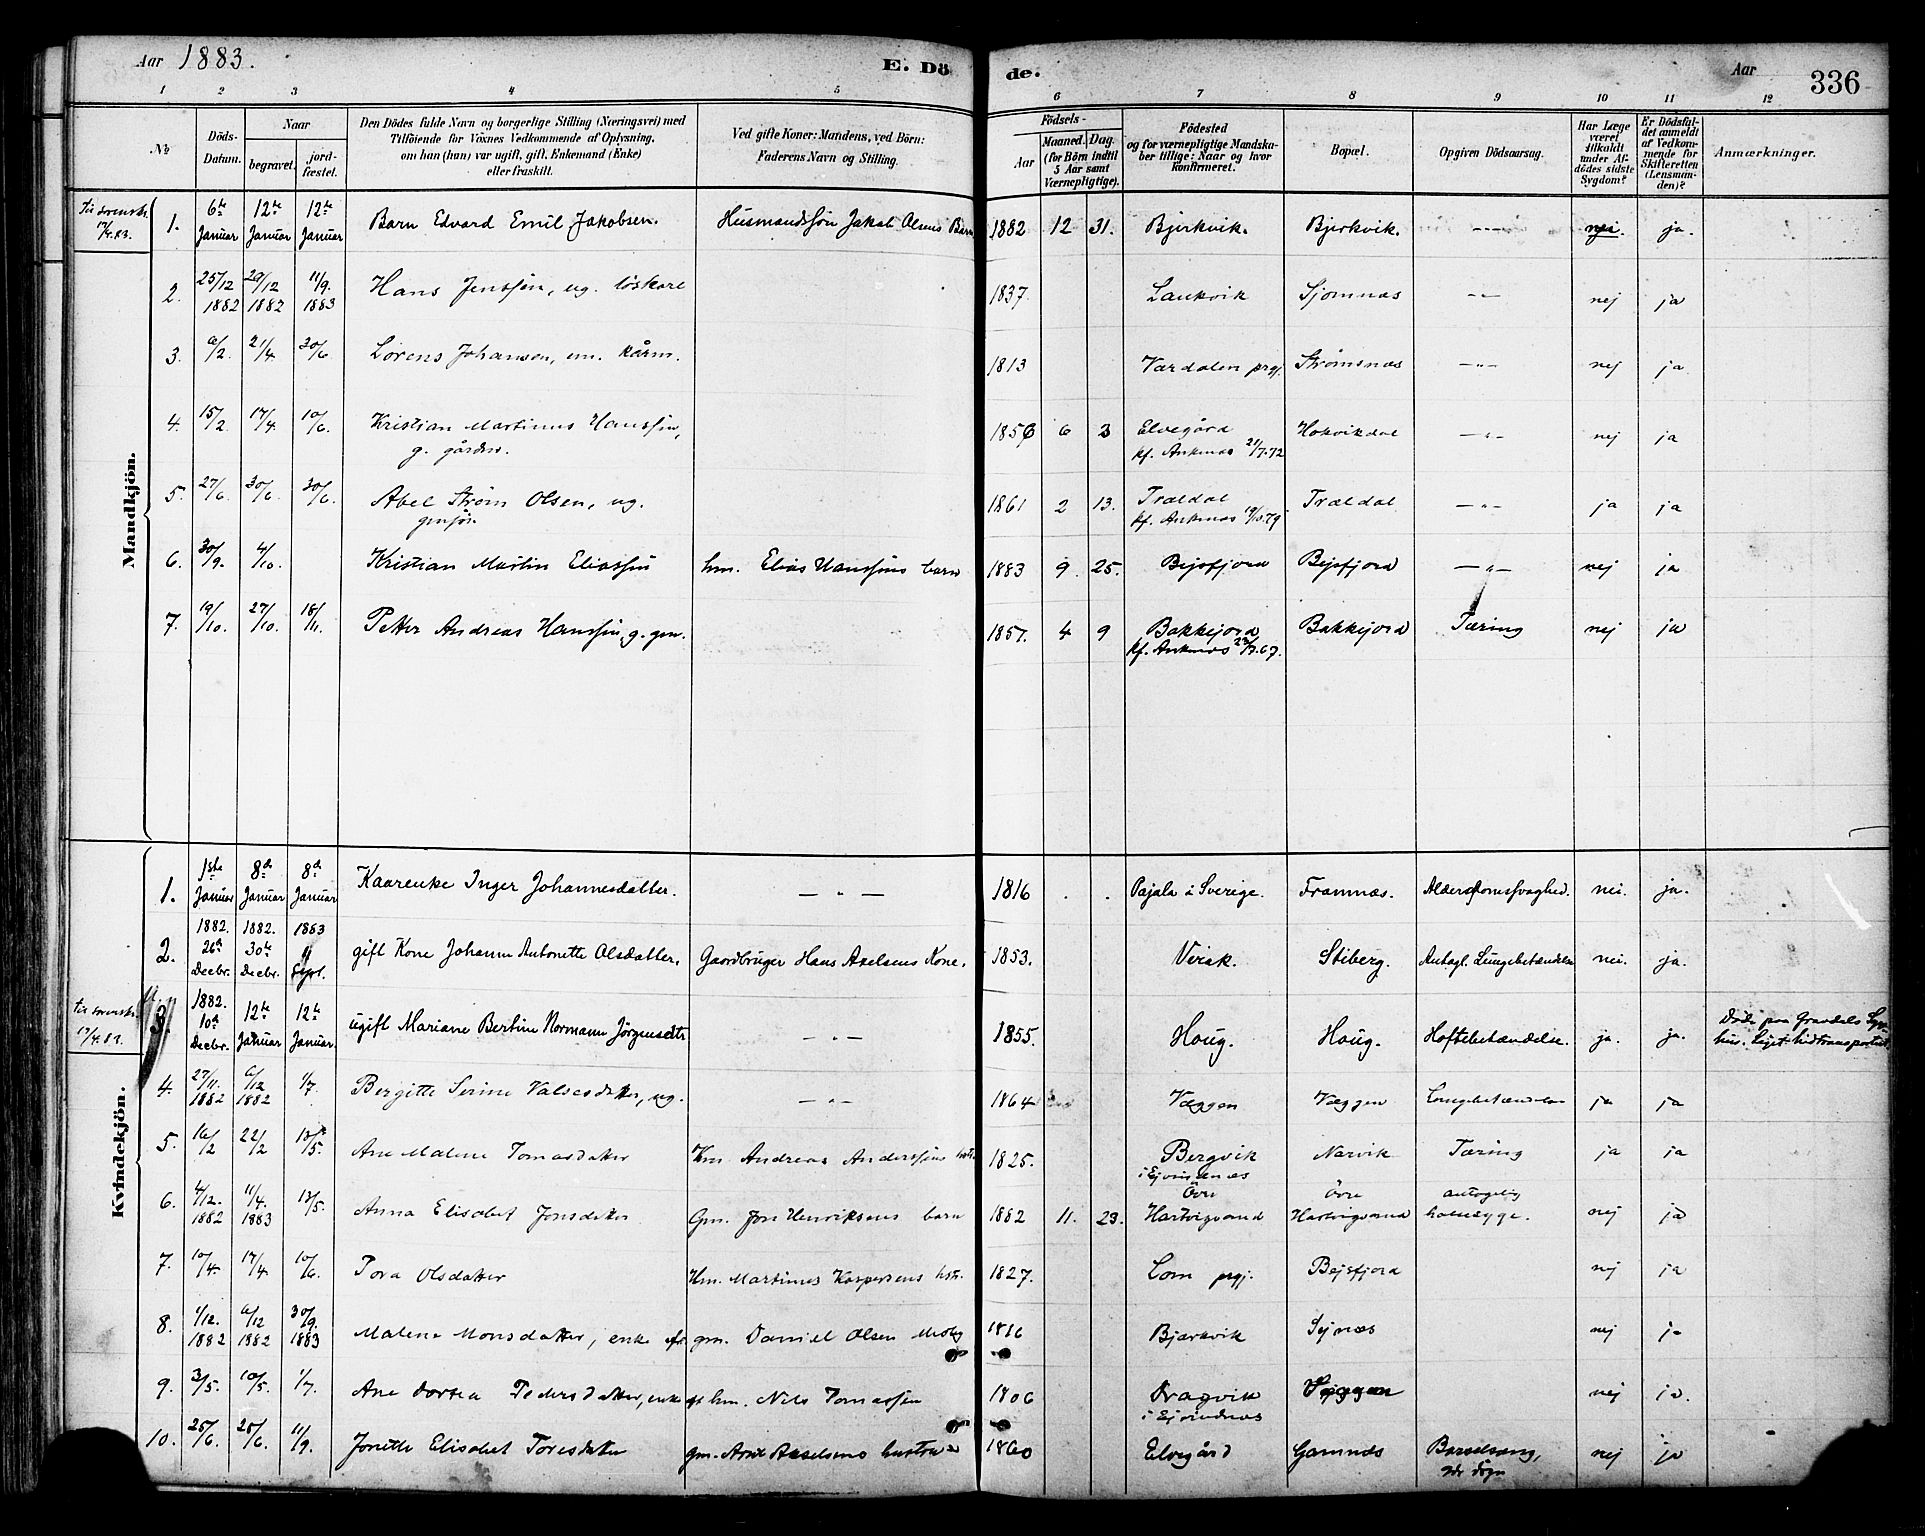 Aar 1883.
E. Dö de.
Aar
336
1 2 3 4 5 6 7 8 9 10 11 12
No
Döds-Datum.
Naar
begravet. jord-fæstet.
Den Dödes fulde Navn og borgerlige Stilling (Næringsvei) med
Tilföiende for Voxnes Vedkommende af Oplysning,
om han (hun) var ugift, gift, Enkemand (Enke)
eller fraskilt.
Ved gifte Koner: Mandens, ved Börn:
Faderens Navn og Stilling.
Födsels-
Aar
Maaned. Dag.
(for Börn indtil
5 Aar samt
Værnepligtige).
Födested
og for værnepligtige Mandska-
ber tillige: Naar og hvor
konfirmeret.
Bopæl.
Opgiven Dödsaarsag.
Har Læge
været
tilkaldt
under Af-
dödes sidste
Sygdom?
Er Dödsfal-
det anmeldt
af Vedkom-
mende for
Skifteretten
(Lensman-
den)?
Anmærkninger.
Mandkjön.
1. 6te Januar 12te Januar 12te Januar Barn Edvard Emil Jakobsen. Husmandssön Jakob Olsens Barn 1882 12 31. Bjerkvik. Bjerkvik. nei. ja.
2. 25/12 1882 29/12 1882 11/9. 1883 Hans Jenssön, ug. löskarl 1837. Laukvik Sjomnæs -"- nej ja
3. 6/2. 21/4. 30/6. Lorens Johansen, em. kårm. 1813 Værdalen prgj. Strømsnæs -"- nej ja
4. 15/2. 17/4. 10/6. Kristian Martinus Hanssön,
g. gårdm. 1856 6 3 Elvegård
kf. Ankenæs 21/7.72 Håkvikdal -"- nej ja
5. 27/6. 30/6. 30/6. Abel Strøm Olsen, ug.
gmsön 1861 2 13. Trældal
kf. Ankenæs Trældal -"- ja ja
6. 30/9. 4/10. Kristian Martin Eliassön hm. Elias Hanssöns barn 1883 9 25. Bejsfjord Bejsfjord -"- nej ja
7. 19/10. 27/10. 18/11. Petter Andreas Hanssön, g. gm. 1851. 4 9 Bakkejord
kf. Ankenæs Bakkejord Tæring nej ja
Kvindekjön.
1. 1ste Januar 8de Januar 8de Januar Kaarenke Inger Johannesdatter. - " - 1816 Pajala i Sverige. Framnæs. Alderdomssvaghed. nei. ja.
2. 1882. 26de Decbr. 1882. 30te Decbr. 1883 Sept. gift Kone Johanna Antonette Olsdatter. Gaardbruger Hans Axelsens Kone. 1853. Virak. Stiberg. Antagl. Lungebetændelse nei. ja.
3. 1882. 10de Decbr. 12te Januar 12te Januar. ugift Mariane Bertine Normann Jörgensdtr - " - 1855. Houg. Houg. Hoftebetændelse. ja. ja. Döde paa
4. 27/11. 1882 6/12 1882 1/7. Bergitte Serine ug. - " - 1864 Væggen Væggen Lungebetændelse ja ja
5. 16/2 22/2 13/5. Ane Malene Tomasdatter Hm. Andreas Anderssöns hstr. 1825. Bergvik
i Ejvindnæs Narvik Tæring ja ja
6. 4/12. 1882 11/4. 1883 13/5. Anna Elisabet Jonsdatter Gm. Jon Henriksens barn 1882 11. 23. Övre
Hartvigvand Övre
Hartvigvand antagelig
halssyge. nej ja
7. 10/4. 17/4. 10/6. Tora Olsdatter Hm. Martinus Kaspersens hstr. 1827. Lom prgj. Bejsfjord nej ja
8. 1/12. 1882 6/12 1882 30/9. 1883 Malene Monsdatter, enke ef. gm. Daniel Olsen 1816 Bjerkvik Sejnæs nej ja
9. 3/5. 10/5. 1/7. Ane Dortea Pedersdatter, enke ef. hm. Nils Tomassön 1806 Dragvik
i Ejvindnæs Væggen nej ja
10. 25/6. 28/6. 11/9. Jonette Elisabet Toresdatter gm. Arnt Axelsens hustru 1860 Elvegård Gamnæs Barselsäng, nej ja